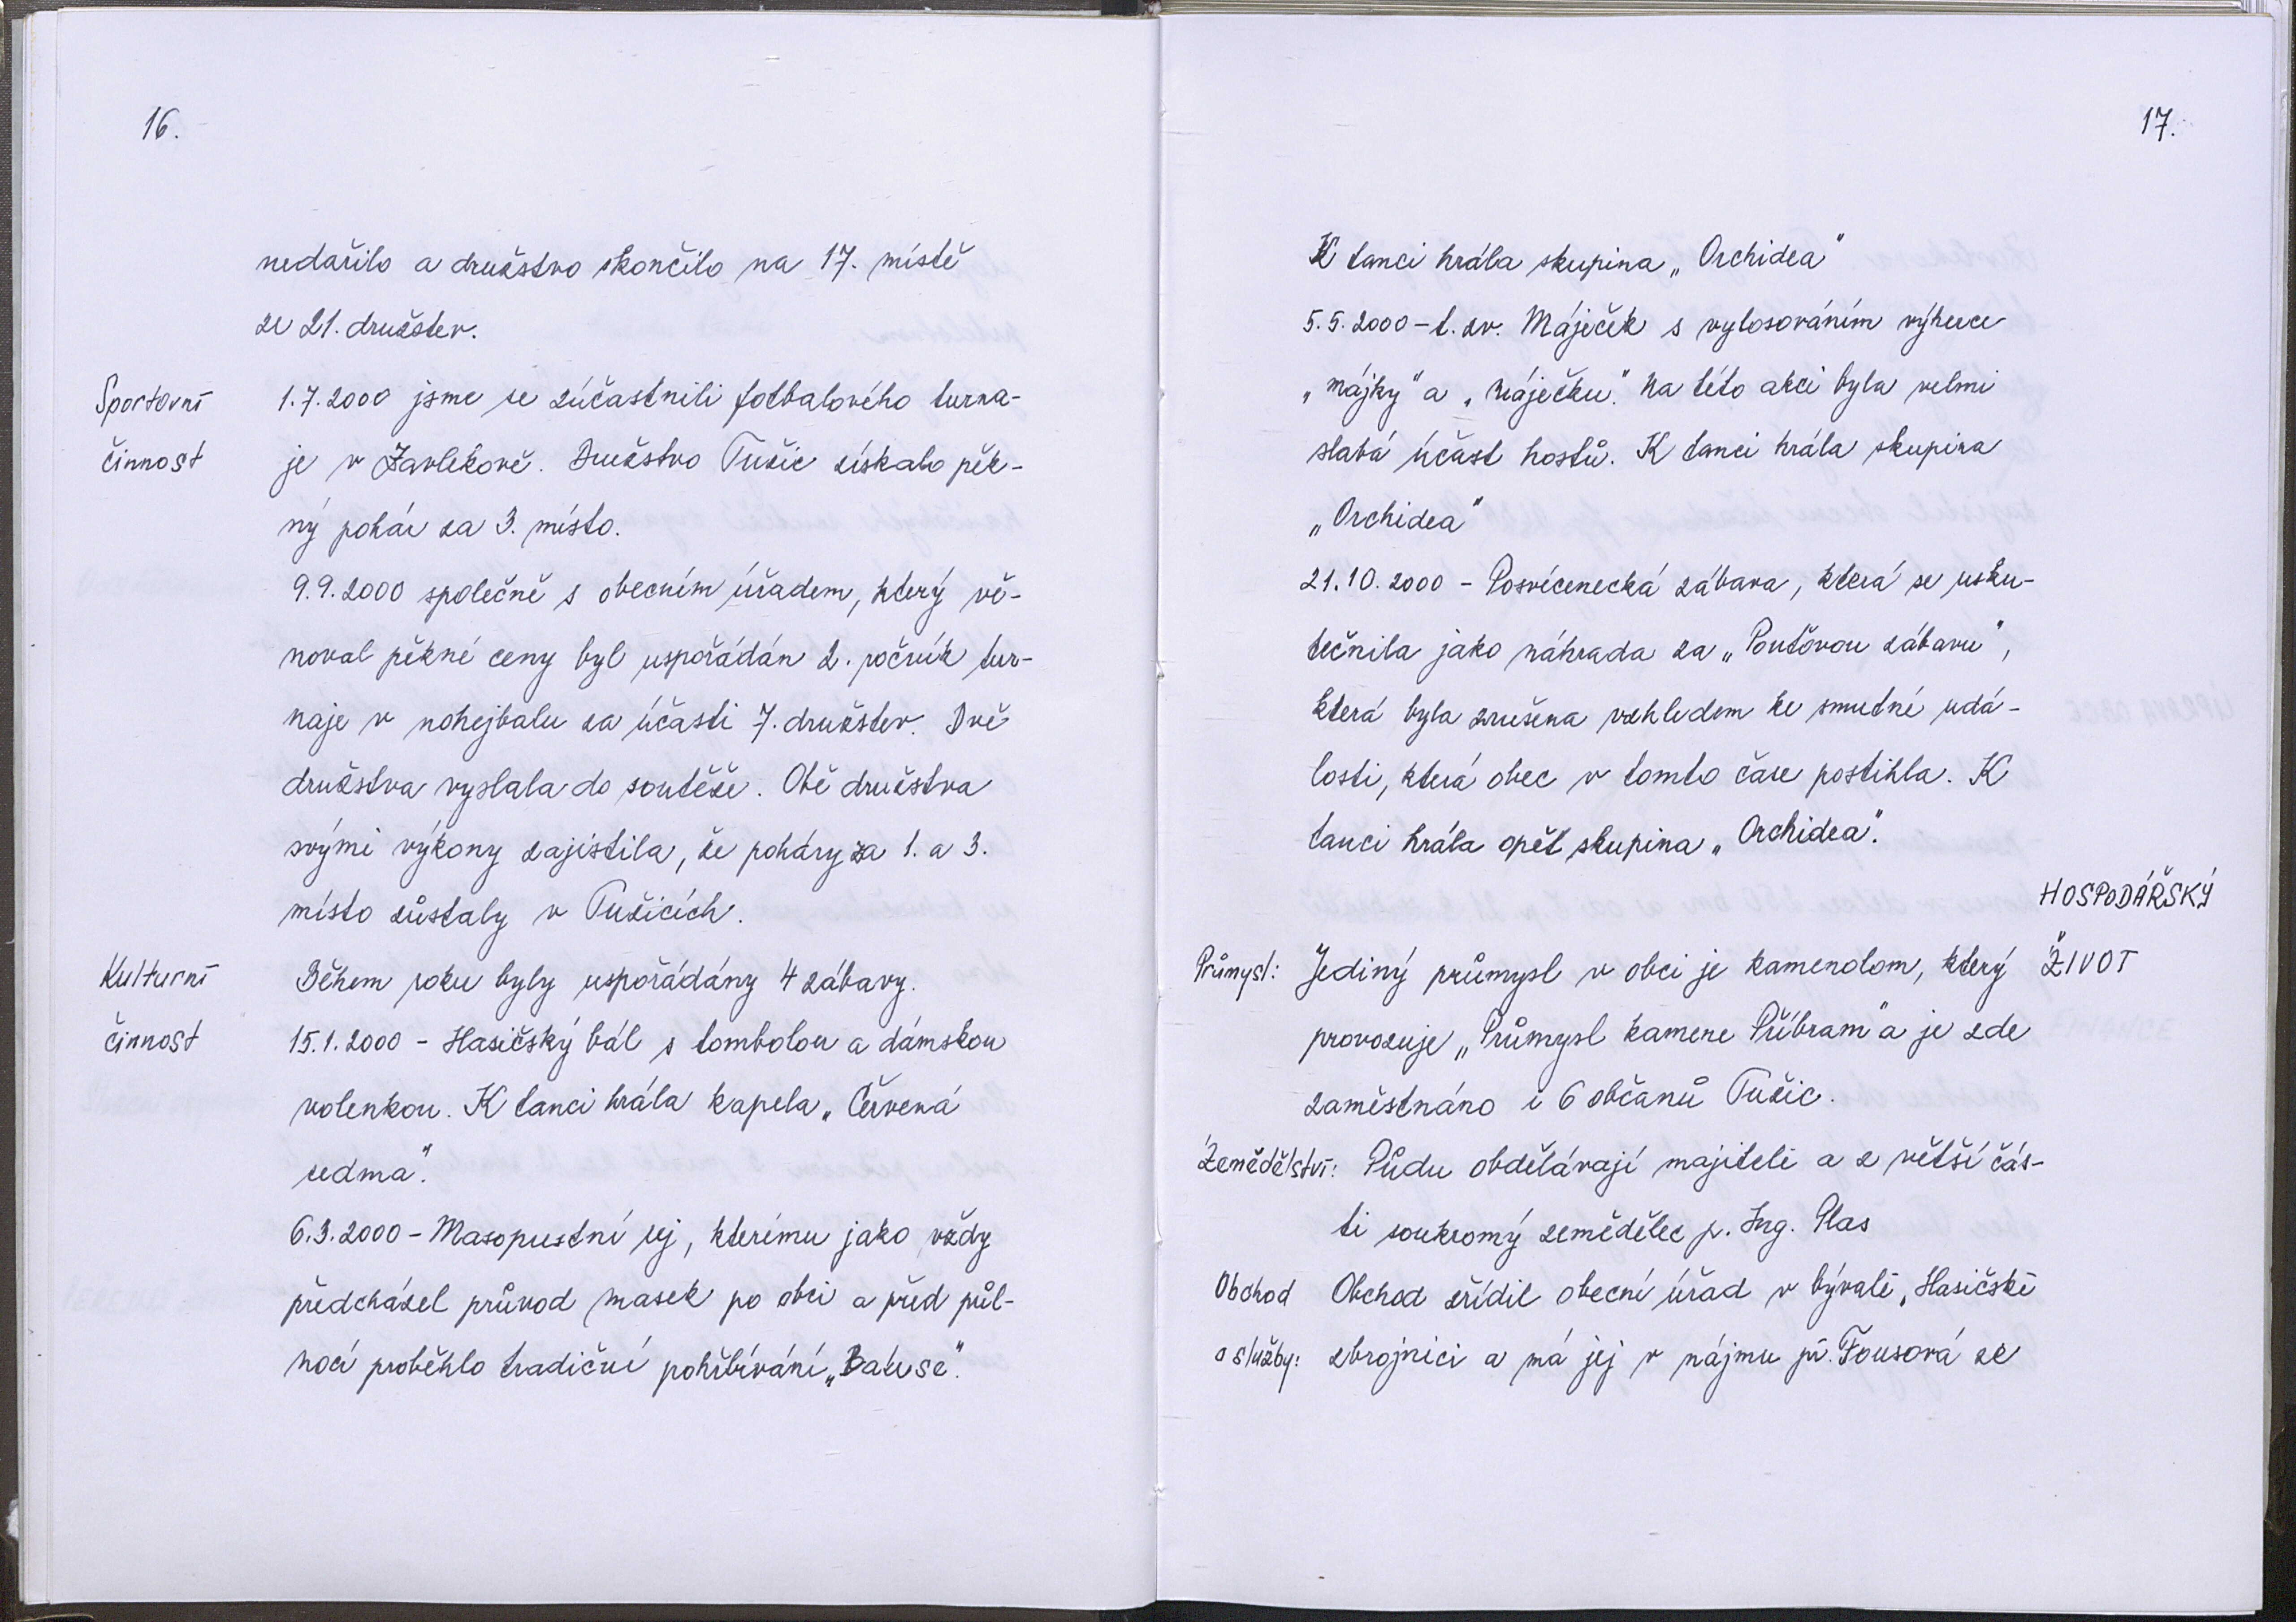 16.
nedařilo a družstvo skončilo na 17. místě
ze 21. družstev.
Sportovní
činnost
1.7.2000 jsme se zúčastnili fotbalového turna-
je v Zavlekově. Družstvo Tužic získalo pěk-
ný pohár za 3. místo.
9.9.2000 společně s obecním úřadem, který vě-
noval pěkné ceny byl uspořádán 2. ročník tur-
naje v nohejbalu za účasti 7. družstev. Dvě
družstva vyslala do soutěže. Obě družstva
svými výkony zajistila, že poháry za 1. a 3.
místo zůstaly v Tužicích.
Kulturní
činnost
Během roku byly uspořádány 4 zábavy.
15.1.2000 - Hasičský bál s tombolou a dámskou
volenkou. K tanci hrála kapela „Červená
sedma".
6.3.2000 - Masopustní rej, kterému jako vždy
předcházel průvod masek po obci a před půl-
nocí proběhlo tradiční pohřbívání „Bakuse".
17.
K tanci hrála skupina „Orchidea"
5.5.2000 - t. zv. Máječek s vylosováním výherce
„májky" a „máječku". Na této akci byla velmi
slabá účast hostů. K tanci hrála skupina
„Orchidea"
21.10.2000 - Posvícenecká zábava, která se usku-
tečnila jako náhrada za „Pouťovou zábavu",
která byla zrušena vzhledem ke smutné udá-
losti, která obec v tomto čase postihla. K
tanci hrála opět skupina „Orchidea".
HOSPODÁŘSKÝ
ŽIVOT
Průmysl: Jediný průmysl v obci je kamenolom, který
provozuje „Průmysl kamene Příbram" a je zde
zaměstnáno i 6 občanů Tužic.
Zemědělství: Půdu obdělávají majitelé a z větší čás-
ti soukromý zemědělec p. Ing. Plas
Obchod Obchod zřídil obecní úřad v bývalé „Hasičské
a služby: zbrojnici a má jej v nájmu pí. Fousová ze